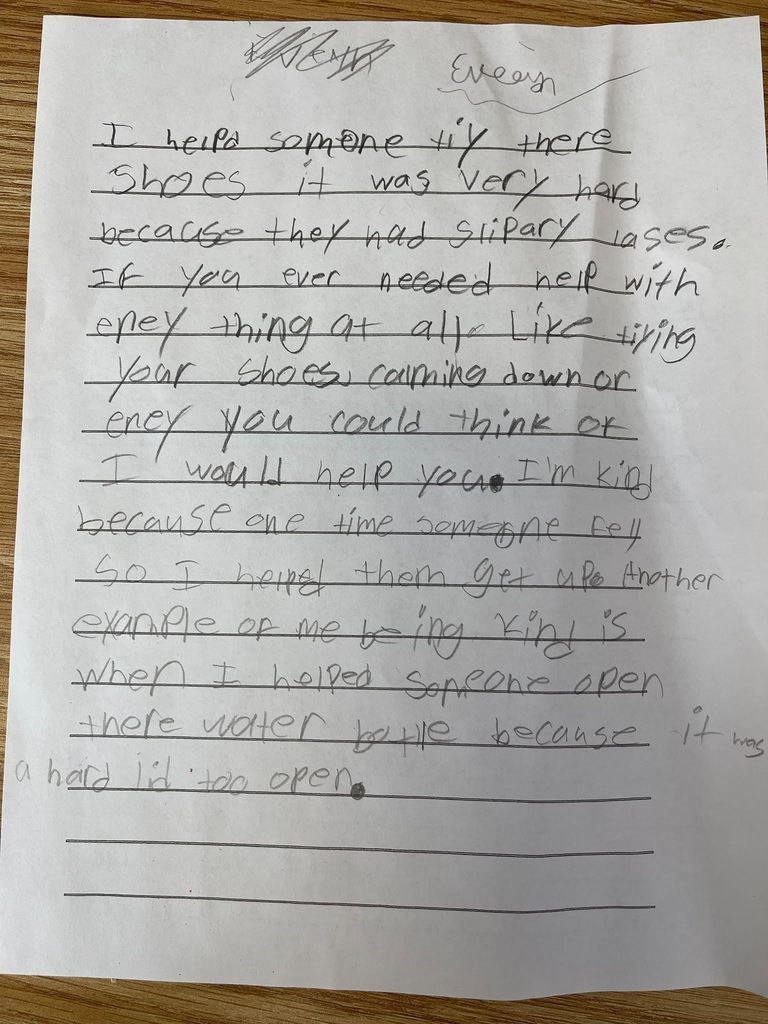 I helpd somone tiy there
shoes it was very hard
because they had slipary lases.
If you ever needed help with
eney thing at all. Like tiying
your shoes, calming down or
eney you could think of
I would help you. I'm kind
because one time someone fell
so I helped them get up. Another
example of me being kind is
when I helped someone open
there water bottle because it was
a hard lid too open.